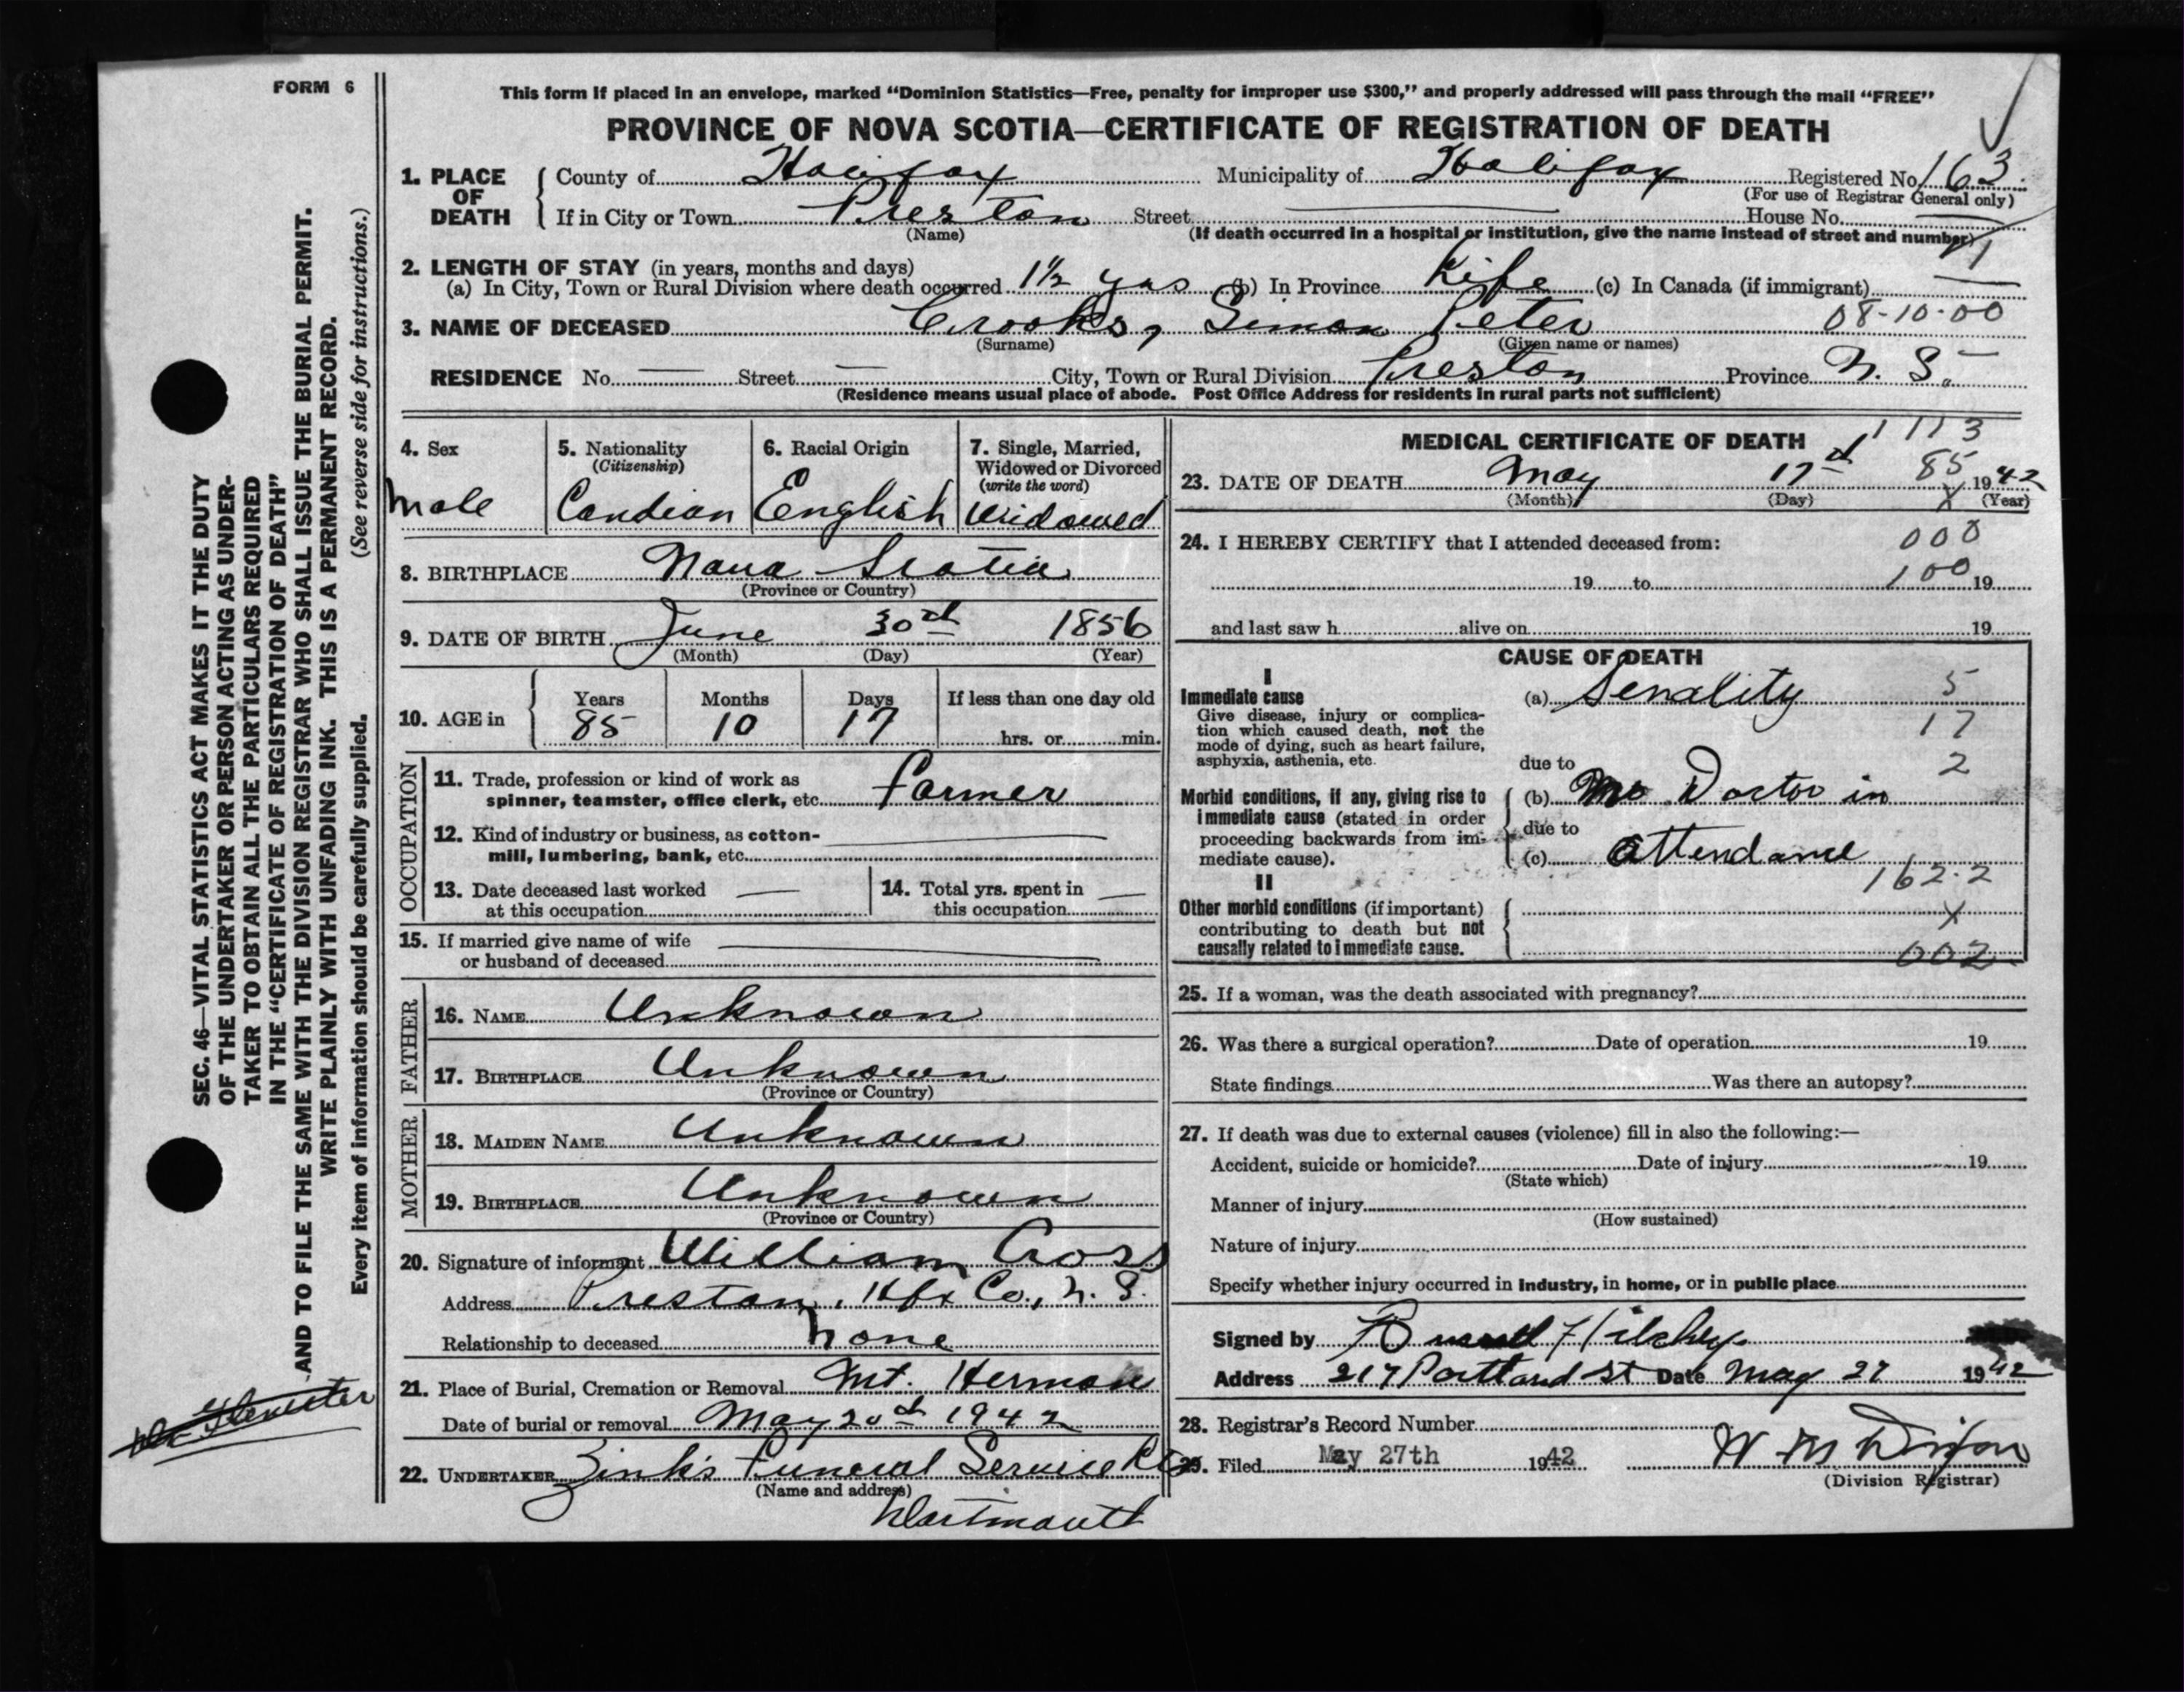 FORM 6
This form if placed in an envelope, marked "Dominion Statistics—Free, penalty for improper use $300," and properly addressed will pass through the mail "FREE"
PROVINCE OF NOVA SCOTIA—CERTIFICATE OF REGISTRATION OF DEATH
1. PLACE OF DEATH
County of Halifax Municipality of Halifax Registered No. 163
(For use of Registrar General only)
If in City or Town Preston Street — House No. —
(Name)
(If death occurred in a hospital or institution, give the name instead of street and number)
1
2. LENGTH OF STAY (in years, months and days)
(a) In City, Town or Rural Division where death occurred 1½ yrs (b) In Province Life (c) In Canada (if immigrant) —
3. NAME OF DECEASED Crooks, Simon Peter 08-10-00
(Surname) (Given name or names)
RESIDENCE No. — Street — City, Town or Rural Division Preston Province N. S.
(Residence means usual place of abode. Post Office Address for residents in rural parts not sufficient)
4. Sex
Male
5. Nationality
(Citizenship)
Candian
6. Racial Origin
English
7. Single, Married,
Widowed or Divorced
(write the word)
Widowed
8. BIRTHPLACE Nova Scotia
(Province or Country)
9. DATE OF BIRTH June 30th 1856
(Month) (Day) (Year)
10. AGE in
Years Months Days If less than one day old
85 10 17 hrs. or min.
OCCUPATION
11. Trade, profession or kind of work as
spinner, teamster, office clerk, etc. Farmer
12. Kind of industry or business, as cotton-
mill, lumbering, bank, etc. —
13. Date deceased last worked —
at this occupation
14. Total yrs. spent in —
this occupation
15. If married give name of wife —
or husband of deceased
FATHER
16. NAME Unknown
17. BIRTHPLACE Unknown
(Province or Country)
MOTHER
18. MAIDEN NAME Unknown
19. BIRTHPLACE Unknown
(Province or Country)
20. Signature of informant William Cross
Address Preston, Hfx Co., N. S.
Relationship to deceased None
21. Place of Burial, Cremation or Removal Mt. Hermon
Date of burial or removal May 20th 1942
22. UNDERTAKER Zink's Funeral Service
(Name and address)
Dartmouth
MEDICAL CERTIFICATE OF DEATH 1113
85
23. DATE OF DEATH May 17th 1942
(Month) (Day) (Year)
X
24. I HEREBY CERTIFY that I attended deceased from: 000
19 to 100 19
and last saw h alive on 19
CAUSE OF DEATH
I
Immediate cause
Give disease, injury or complica-
tion which caused death, not the
mode of dying, such as heart failure,
asphyxia, asthenia, etc.
(a) Senality 5
17
due to 2
Morbid conditions, if any, giving rise to
immediate cause (stated in order
proceeding backwards from im-
mediate cause).
(b) No Doctor in
due to
(c) attendance
162.2
II
Other morbid conditions (if important)
contributing to death but not
causally related to immediate cause.
X
002
25. If a woman, was the death associated with pregnancy?
26. Was there a surgical operation? Date of operation 19
State findings Was there an autopsy?
27. If death was due to external causes (violence) fill in also the following:—
Accident, suicide or homicide? Date of injury 19
(State which)
Manner of injury
(How sustained)
Nature of injury
Specify whether injury occurred in industry, in home, or in public place
Signed by Hilchey
Address 217 Portland St Date May 27 1942
28. Registrar's Record Number
29. Filed May 27th 1942 W M
(Division Registrar)
SEC. 46—VITAL STATISTICS ACT MAKES IT THE DUTY
OF THE UNDERTAKER OR PERSON ACTING AS UNDER-
TAKER TO OBTAIN ALL THE PARTICULARS REQUIRED
IN THE "CERTIFICATE OF REGISTRATION OF DEATH"
AND TO FILE THE SAME WITH THE DIVISION REGISTRAR WHO SHALL ISSUE THE BURIAL PERMIT.
WRITE PLAINLY WITH UNFADING INK. THIS IS A PERMANENT RECORD.
Every item of information should be carefully supplied. (See reverse side for instructions.)